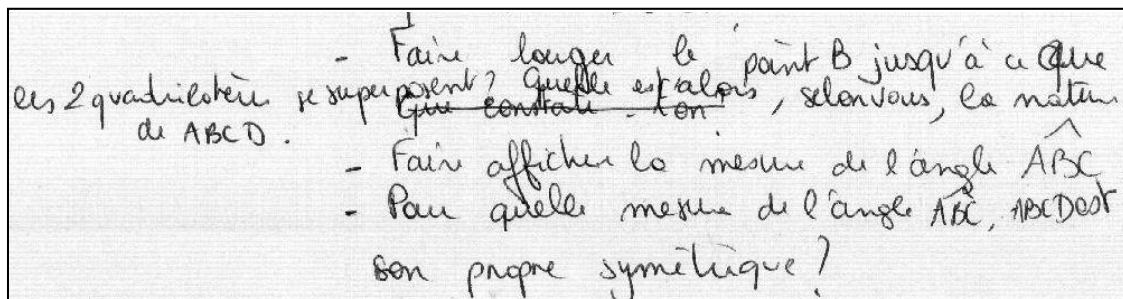 - Faire bouger le point B jusqu'à ce que
les 2 quadrilatères se superposent ? Quelle est alors, selon vous, la nature
de ABCD. Que constate-t-on
- Faire afficher la mesure de l'angle ABC
- Pour quelle mesure de l'angle ABC, ABCD est
son propre symétrique ?